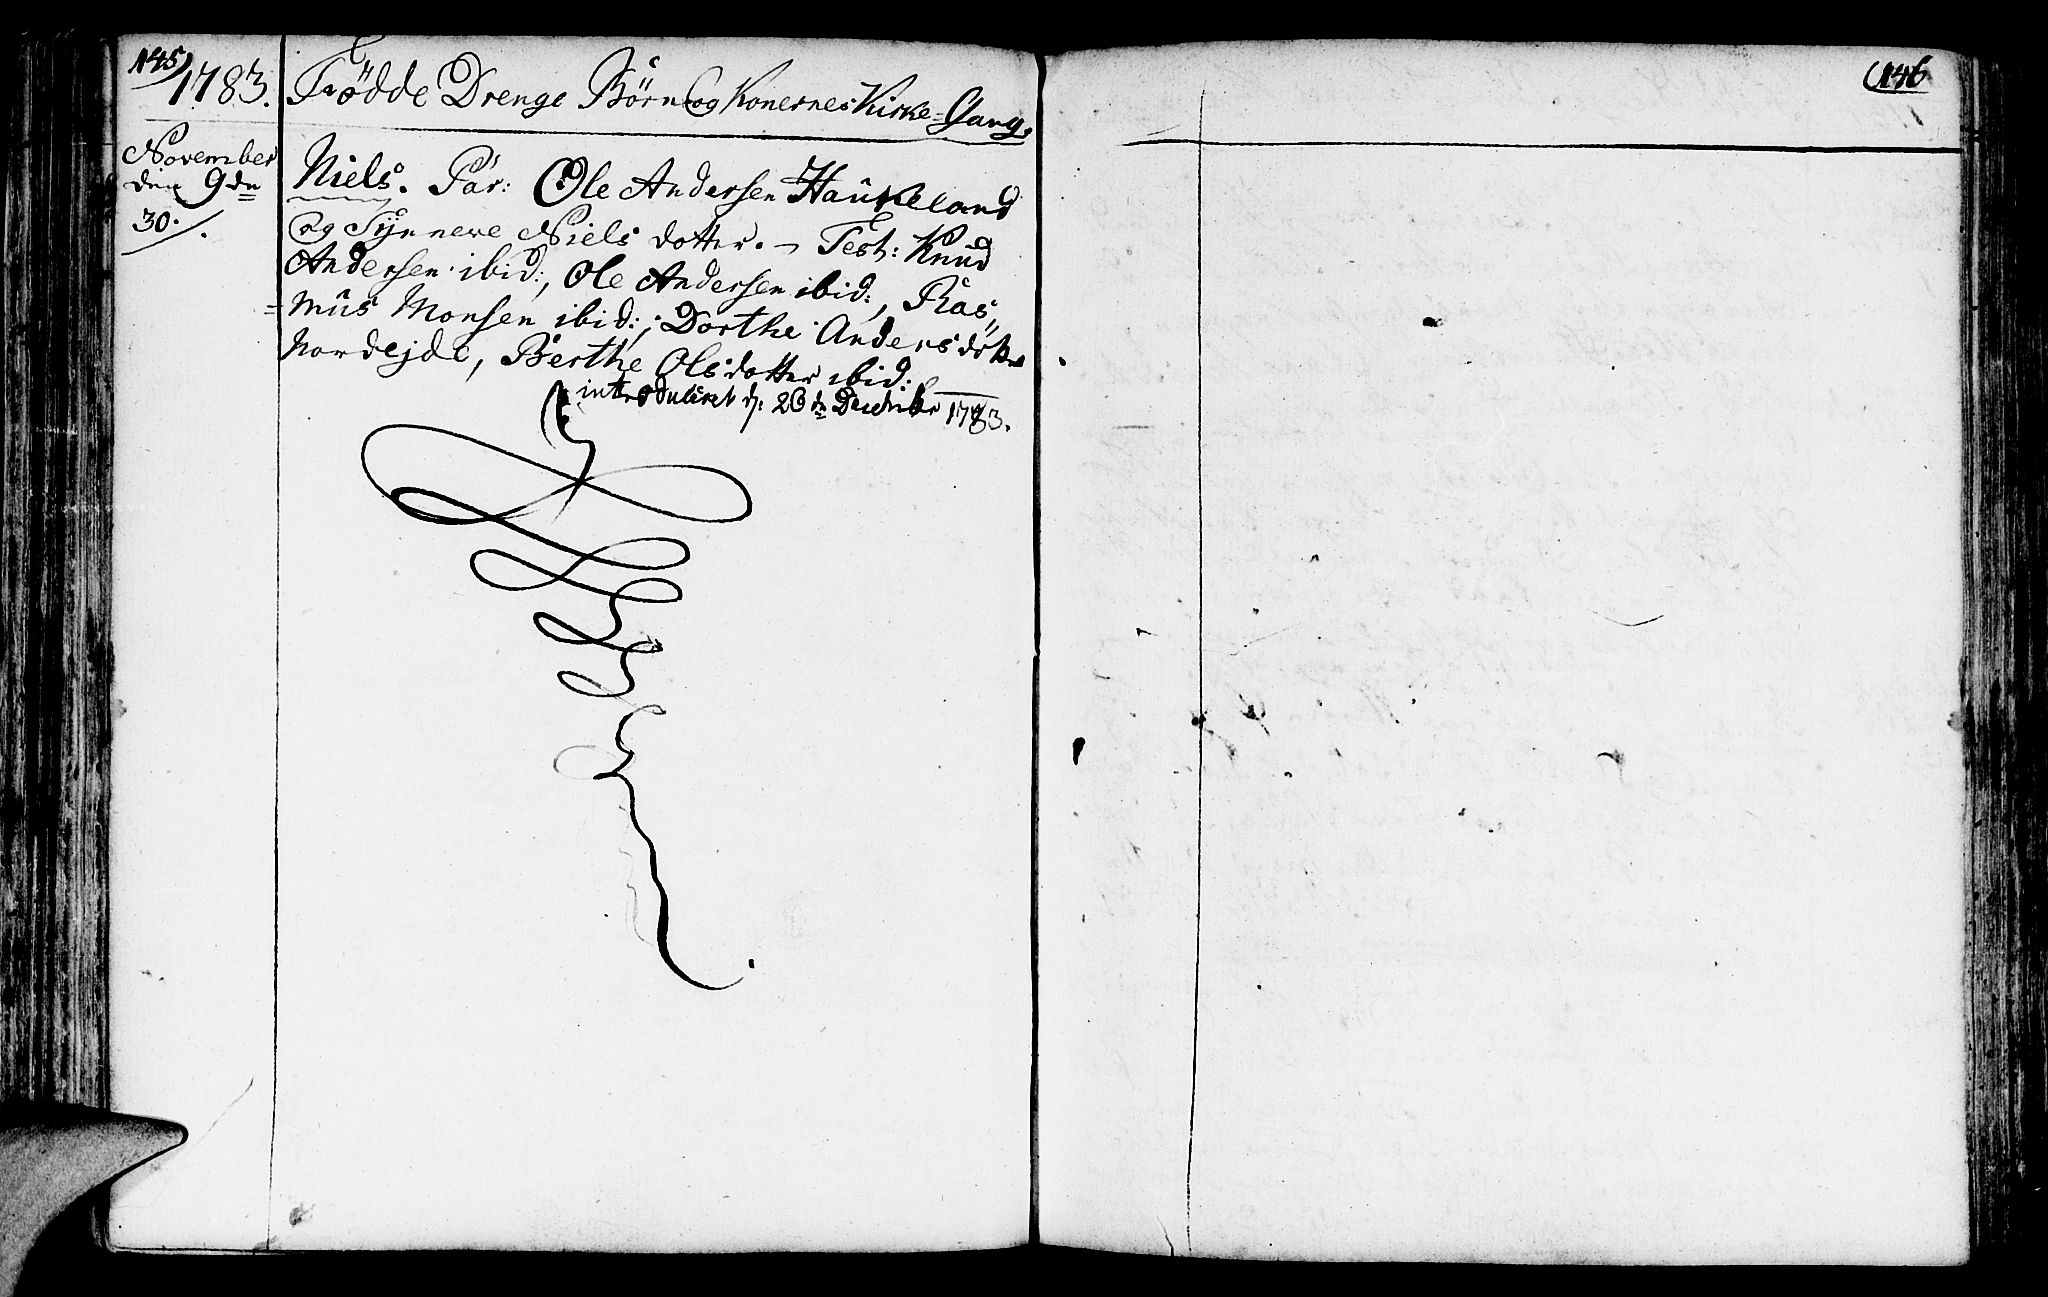 145)
1783. Fødde Drenge Børn og Konernes Kirke-Gang.
November
den 9de
30.
Niels. Par: Ole Andersen Haukeland
og Synneve Niels dotter. – Test: Knud
Andersen ibid:, Ole Andersen ibid:, Ras„
=mus Monsen ibid:, Dorthe Andersdotter
Nordejde, Berthe Olsdotter ibid:
introduceret d: 26de December 1783.
(146